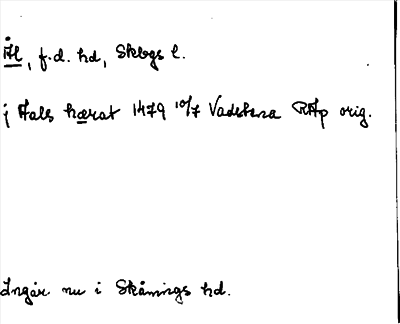 Ål, f.d. hd, Skbgs l.
j Aals hærat 1479 10/7 Vadstena RAp orig.
Ingår nu i Skånings hd.